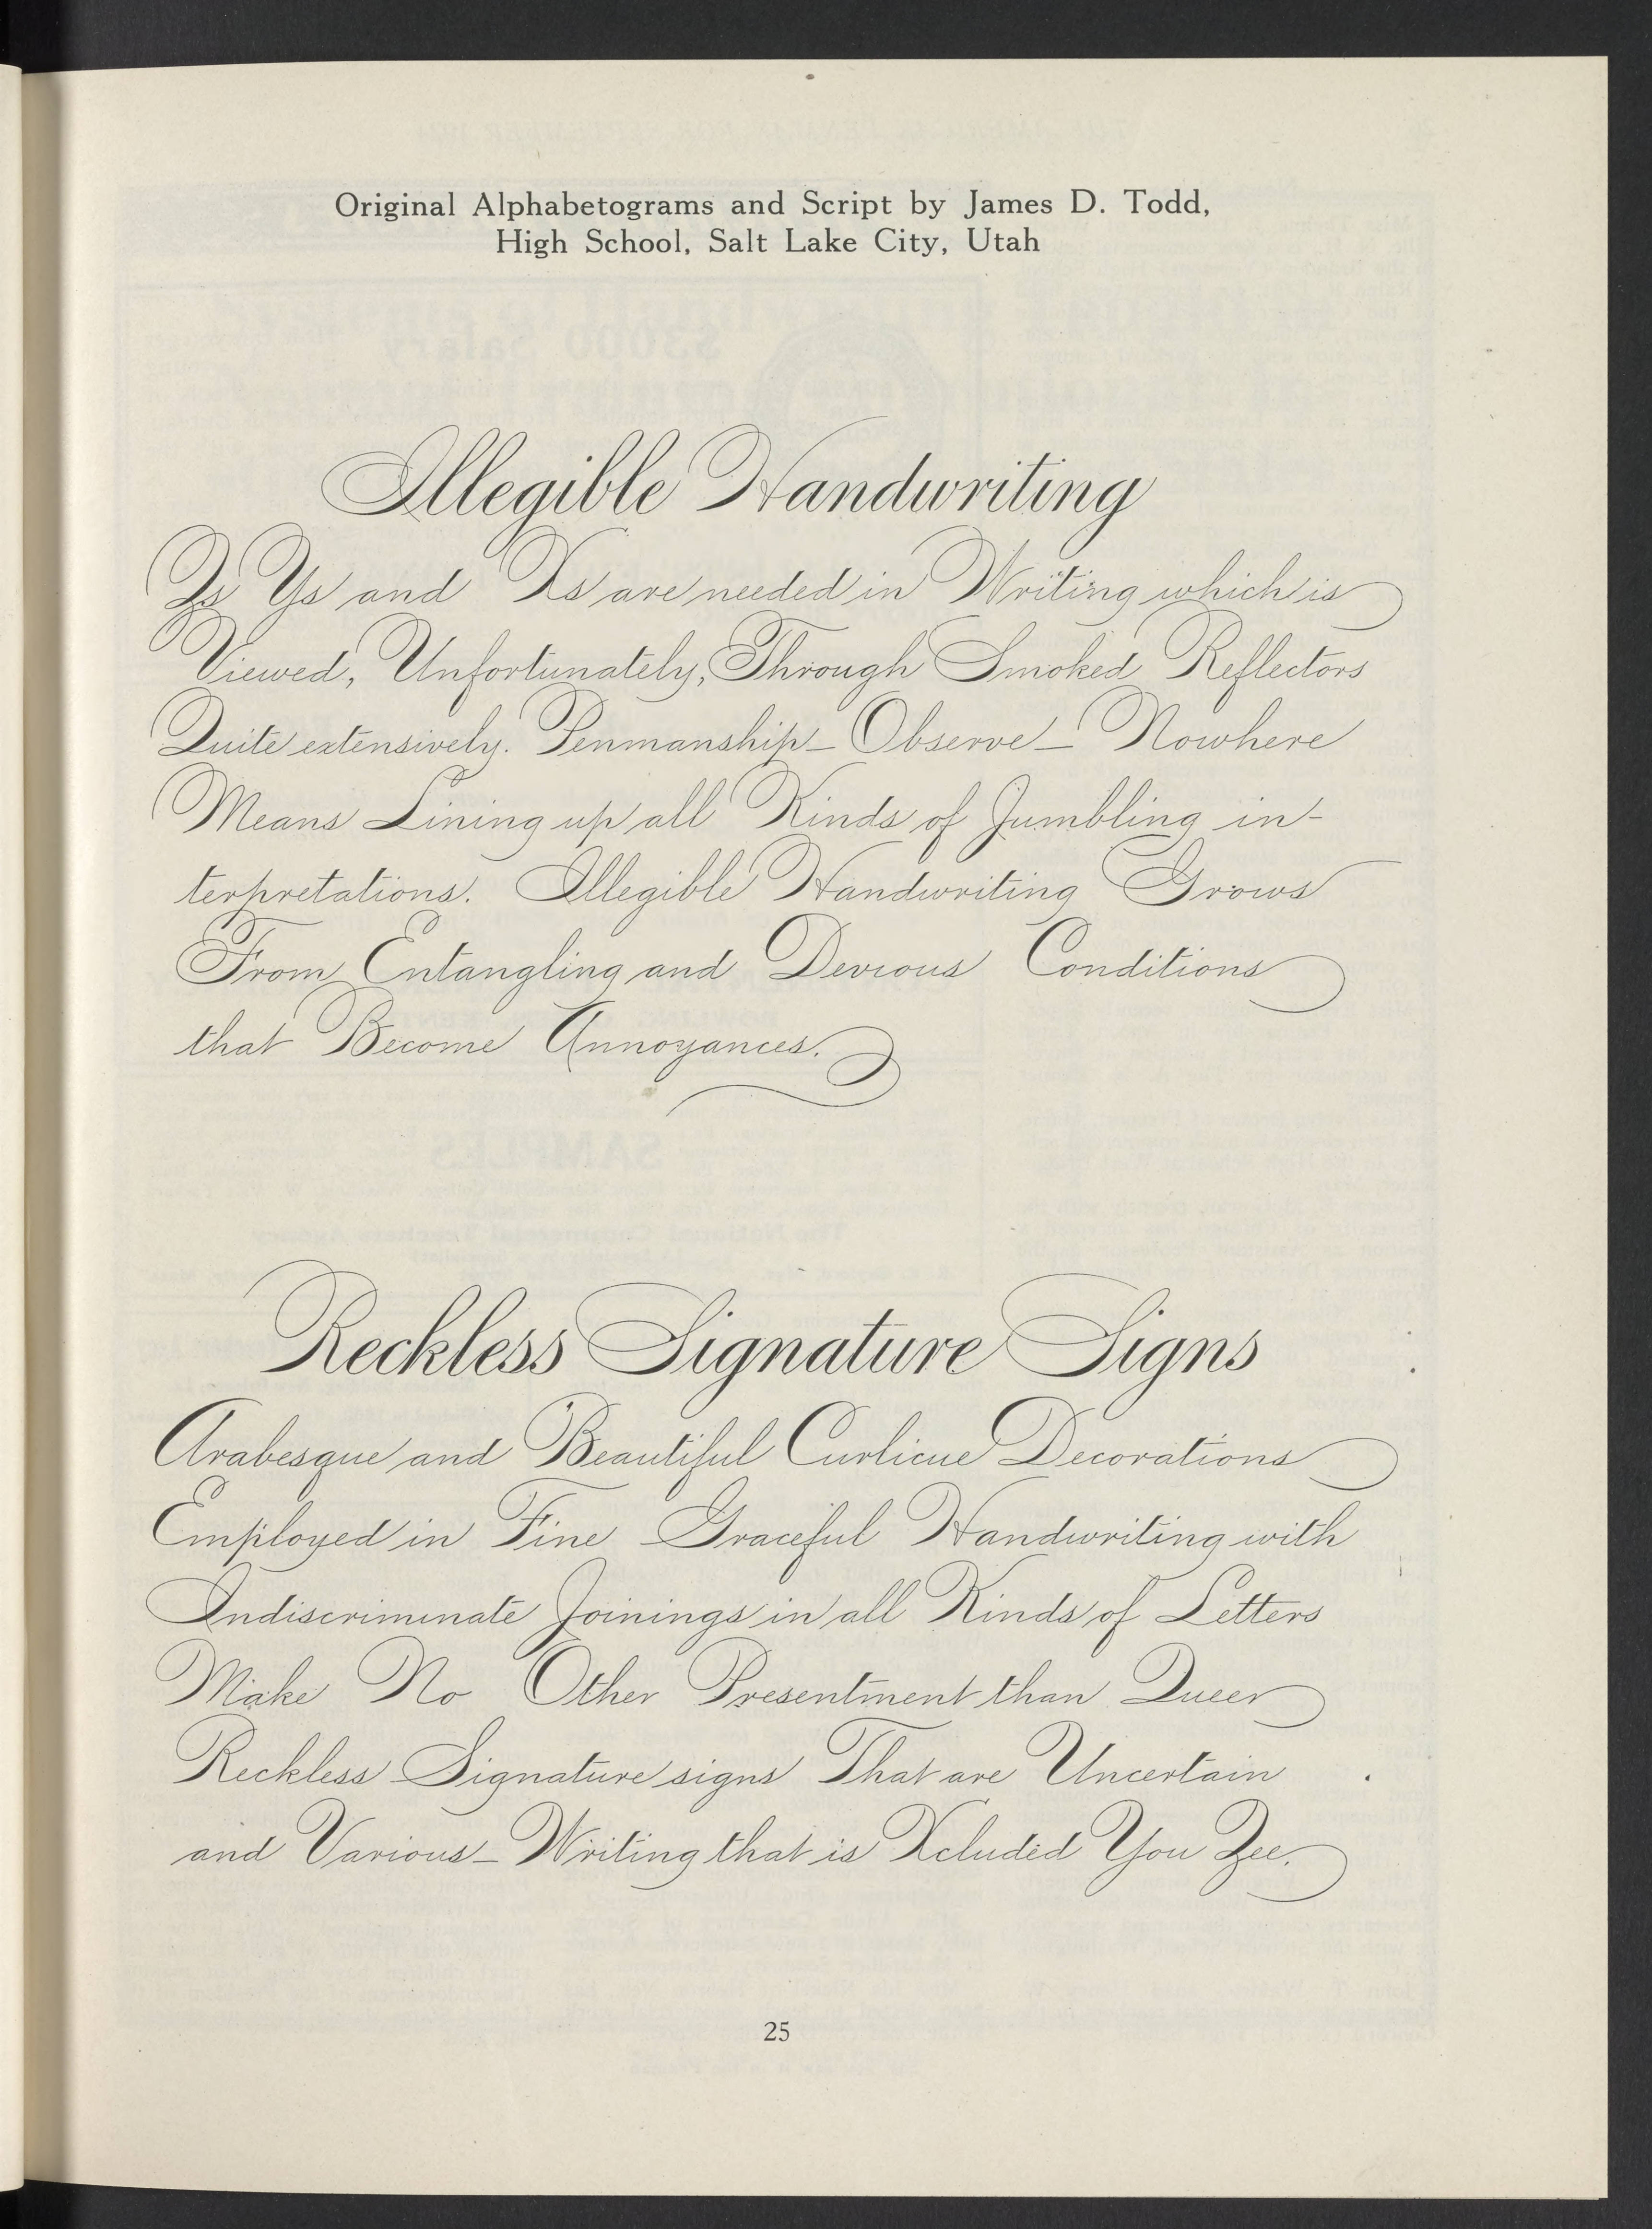 Original Alphabetograms and Script by James D. Todd,
High School, Salt Lake City, Utah
Illegible Handwriting
Zs Ys and Xs are needed in Writing which is
Viewed, Unfortunately, Through Smoked Reflectors
Quite extensively. Penmanship – Observe – Nowhere
Means Lining up all Kinds of Jumbling in-
terpretations. Illegible Handwriting Grows
From Entangling and Devious Conditions
that Become Annoyances.
Reckless Signature Signs
Arabesque and Beautiful Curlicue Decorations
Employed in Fine Graceful Handwriting with
Indiscriminate Joinings in all Kinds of Letters
Make No Other Presentment than Queer
Reckless Signature signs That are Uncertain
and Various – Writing that is Xcluded You Zee.
25